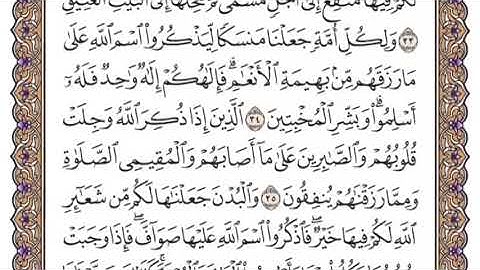 لَكُمْ فِيهَا مَنَٰفِعُ إِلَىٰٓ أَجَلٍ مُّسَمًّى ثُمَّ مَحِلُّهَآ إِلَى ٱلْبَيْتِ ٱلْعَتِيقِ
٣٣ وَلِكُلِّ أُمَّةٍ جَعَلْنَا مَنسَكًا لِّيَذْكُرُوا۟ ٱسْمَ ٱللَّهِ عَلَىٰ
مَا رَزَقَهُم مِّنۢ بَهِيمَةِ ٱلْأَنْعَٰمِ فَإِلَٰهُكُمْ إِلَٰهٌ وَٰحِدٌ فَلَهُۥٓ
أَسْلِمُوا۟ وَبَشِّرِ ٱلْمُخْبِتِينَ ٣٤ ٱلَّذِينَ إِذَا ذُكِرَ ٱللَّهُ وَجِلَتْ
قُلُوبُهُمْ وَٱلصَّٰبِرِينَ عَلَىٰ مَآ أَصَابَهُمْ وَٱلْمُقِيمِى ٱلصَّلَوٰةِ
وَمِمَّا رَزَقْنَٰهُمْ يُنفِقُونَ ٣٥ وَٱلْبُدْنَ جَعَلْنَٰهَا لَكُم مِّن شَعَٰٓئِرِ
ٱللَّهِ لَكُمْ فِيهَا خَيْرٌ فَٱذْكُرُوا۟ ٱسْمَ ٱللَّهِ عَلَيْهَا صَوَآفَّ فَإِذَا وَجَبَتْ